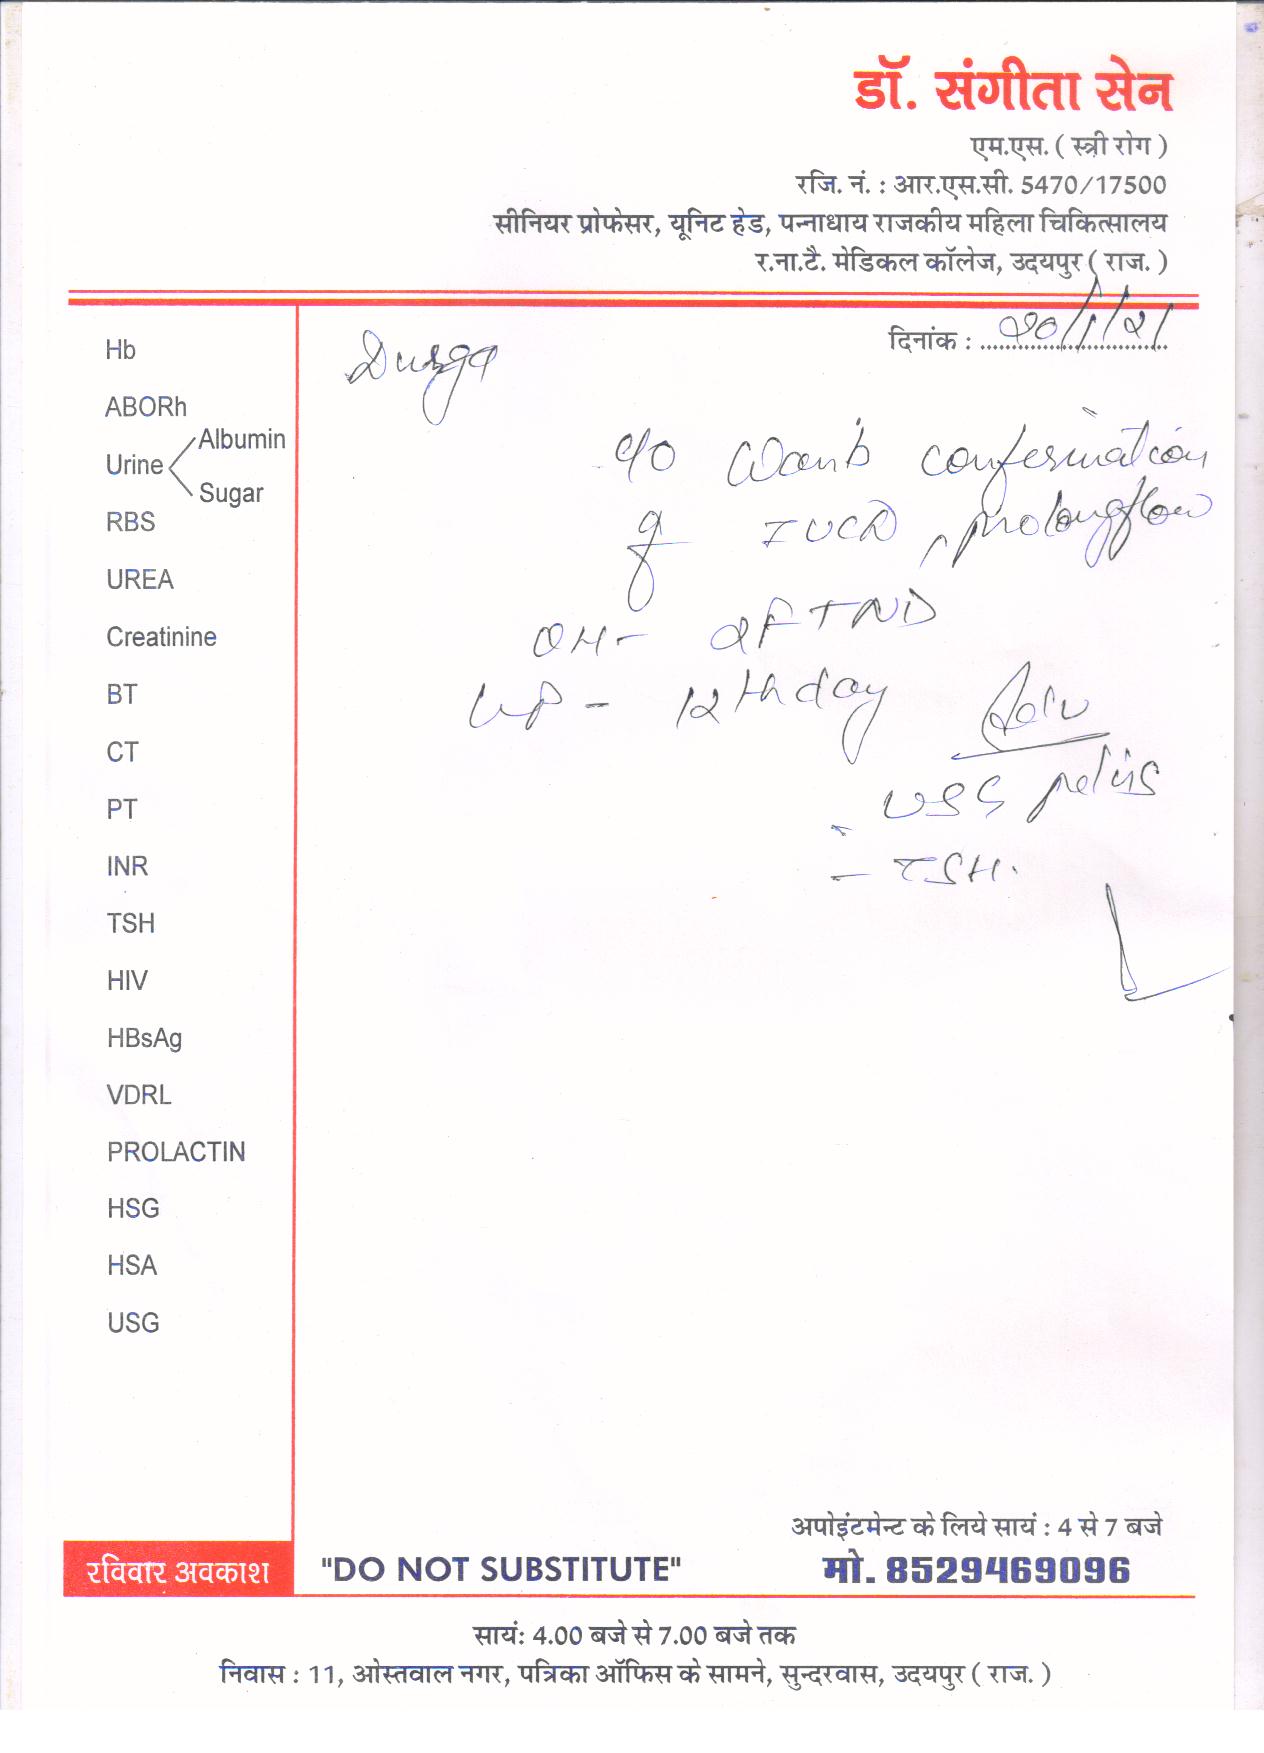 डॉ. संगीता सेन
एम.एस. ( स्त्री रोग )
रजि. नं. : आर.एस.सी. 5470/17500
सीनियर प्रोफेसर, यूनिट हेड, पन्नाधाय राजकीय महिला चिकित्सालय
र.ना.टै. मेडिकल कॉलेज, उदयपुर ( राज. )
दिनांक :
Durga
c/o Wants confermation
of IUCD, prolong flow
OH- 2FTND
LMP - 12th day
Adv
USG pelvis
- TSH.
Hb
ABORh
Urine Albumin
Sugar
RBS
UREA
Creatinine
BT
CT
PT
INR
TSH
HIV
HBsAg
VDRL
PROLACTIN
HSG
HSA
USG
अपोइंटमेन्ट के लिये सायं : 4 से 7 बजे
रविवार अवकाश "DO NOT SUBSTITUTE" मो. 8529469096
सायं: 4.00 बजे से 7.00 बजे तक
निवास : 11, ओस्तवाल नगर, पत्रिका ऑफिस के सामने, सुन्दरवास, उदयपुर ( राज. )